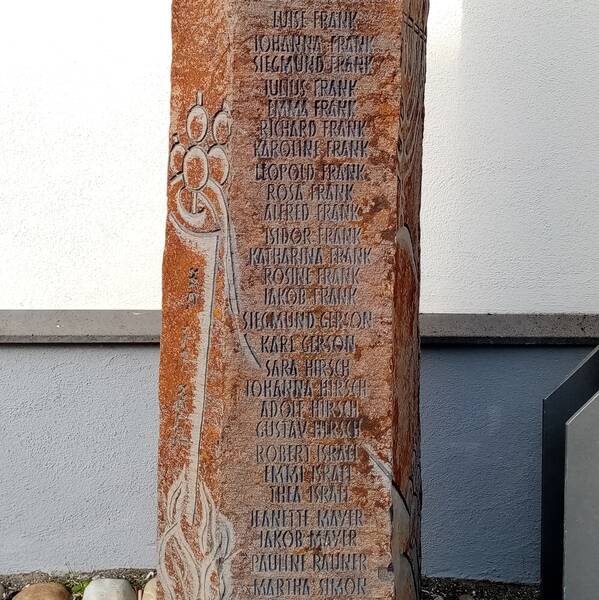 LUISE FRANK
JOHANNA FRANK
SIEGMUND FRANK
JULIUS FRANK
EMMA FRANK
RICHARD FRANK
KAROLINE FRANK
LEOPOLD FRANK
ROSA FRANK
ALFRED FRANK
ISIDOR FRANK
KATHARINA FRANK
ROSINE FRANK
JAKOB FRANK
SIEGMUND GERSON
KARL GERSON
SARA HIRSCH
JOHANNA HIRSCH
ADOLF HIRSCH
GUSTAV HIRSCH
ROBERT ISRAEL
EMMI ISRAEL
THEA ISRAEL
JEANETTE MAYER
JAKOB MAYER
PAULINE RAUNER
MARTHA SIMON